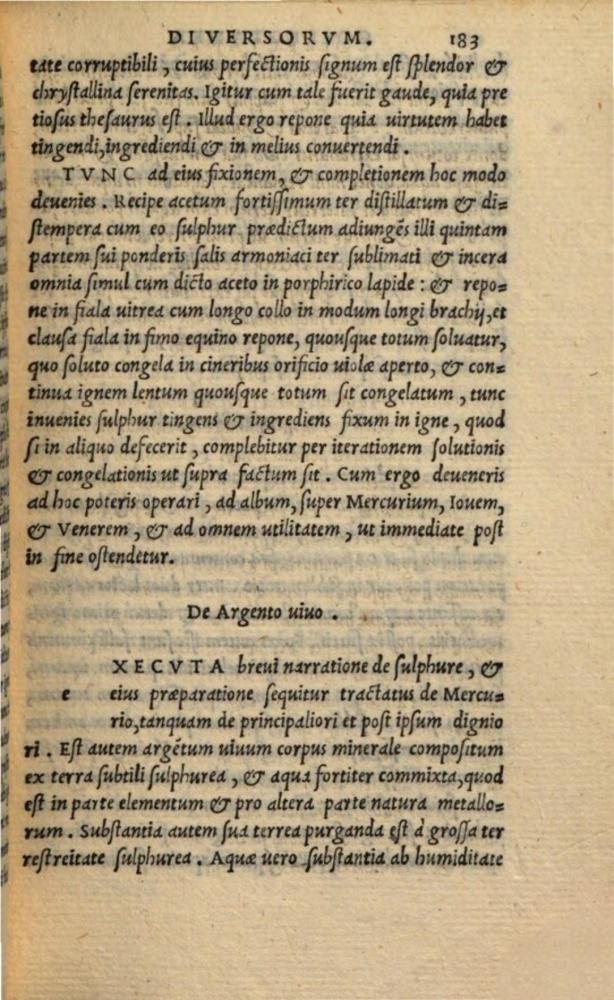 DIVERSORVM. 183
tate corruptibili, cuius perfectionis signum est splendor &
chrystallina serenitas. Igitur cum tale fuerit gaude, quia pre
tiosus thesaurus est. Illud ergo repone quia uirtutem habet
tingendi, ingrediendi & in melius conuertendi.
TVNC ad eius fixionem, & completionem hoc modo
deuenies. Recipe acetum fortissimum ter distillatum & di=
stempera cum eo sulphur prædictum adiungẽs illi quintam
partem sui ponderis salis armoniaci ter sublimati & incera
omnia simul cum dicto aceto in porphirico lapide: & repo=
ne in fiala uitrea cum longo collo in modum longi brachij, et
clausa fiala in fimo equino repone, quousque totum soluatur,
quo soluto congela in cineribus orificio uiolæ aperto, & con=
tinua ignem lentum quousque totum sit congelatum, tunc
inuenies sulphur tingens & ingrediens fixum in igne, quod
si in aliquo defecerit, complebitur per iterationem solutionis
& congelationis ut supra factum sit. Cum ergo deueneris
ad hoc poteris operari, ad album, super Mercurium, Iouem,
& Venerem, & ad omnem utilitatem, ut immediate post
in fine ostendetur.
De Argento uiuo.
e XECVTA breui narratione de sulphure, &
eius præparatione sequitur tractatus de Mercu=
rio, tanquam de principaliori et post ipsum dignio
ri. Est autem argẽtum uiuum corpus minerale compositum
ex terra subtili sulphurea, & aqua fortiter commixta, quod
est in parte elementum & pro altera parte natura metallo=
rum. Substantia autem sua terrea purganda est à grossa ter
restreitate sulphurea. Aquæ uero substantia ab humiditate